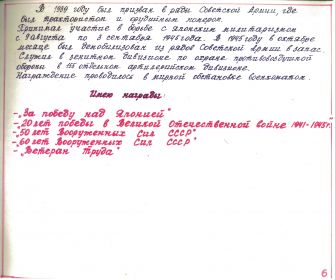 В 1939 году был призван в ряды Советской Армии, где
был трактористом и орудийным номером.
Принимал участие в борьбе с японским милитаризмом
с 9 августа по 3 сентября 1945 года. В 1945 году в октябре
месяце был демобилизован из рядов Советской Армии в запас.
Служил в зенитном дивизионе по охране противовоздушной
обороны в отдельном артиллерийском дивизионе.
Награждение проводилось в мирной обстановке военкоматом.
Имею награды:
- "За победу над Японией"
- "20 лет победы в Великой Отечественной войне 1941-1945г"
- "50 лет Вооруженных Сил СССР"
- "60 лет Вооруженных Сил СССР"
- "Ветеран Труда"
6